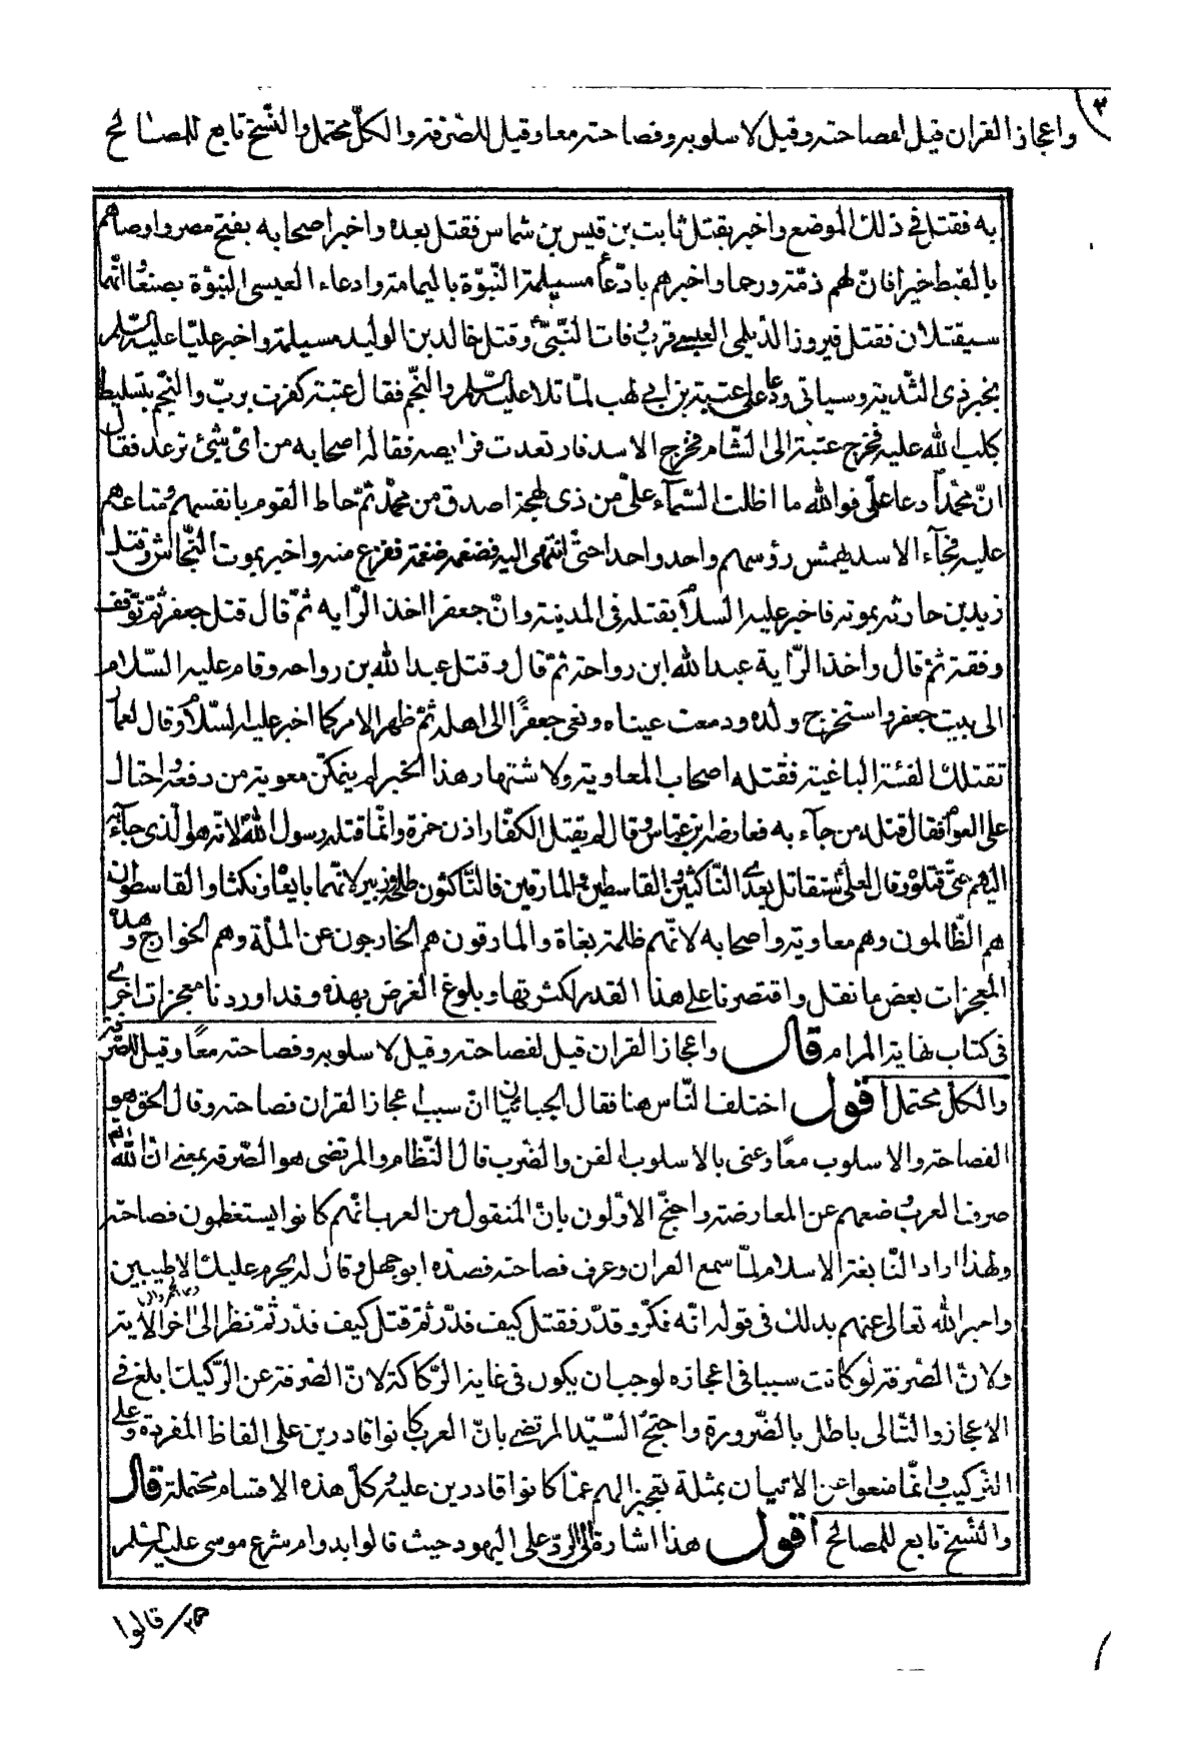 واعجاز القران قيل لفصاحته وقيل لاسلوبه وفصاحته معا وقيل للصرفة والكلّ محتمل والنّسخ تابع للمصالح
به فقتل فى ذلك الموضع واخبر بقتل ثابت بن قيس بن شماس فقتل بعده واخبر اصحابه بفتح مصر واوصاهم
بالقبط خيرا فانّ لهم ذمّة ورحما واخبرهم بادّعاء مسيلمة النّبوّة باليمامة وادعاء العيسى النبوّة بصنعاء وانّهما
سيقتلان فقتل فيروز الدّيلمى العيسى قرب وفات النّبىّ وقتل خالد بن الوليد مسيلمة واخبر عليّا عليه السّلم
بخبر ذى الثّدية وسياتى ودعا على عتبة بن ابى لهب لمّا تلا عليه السّلم والنّجم فقال عتبة كفرت بربّ والنّجم بتسليط
كلب الله عليه فخرج عتبة الى الشّام فخرج الاسد فارتعدت فرايصه فقال له اصحابه من اىّ شيئ ترعد فقال
انّ محمّداً دعا علىّ فوالله ما اظلت السّمآء علىّ من ذى لهجة اصدق من محمّد ثمّ حاط القوم بانفسهم ومتاعهم
عليه فجآء الاسد يهمش رؤسهم واحدا واحدا حتّى انتهى اليه فضغمه ضغمة ففزع منه واخبر بموت النّجاشى وقتل
زيد بن حارثه بموته فاخبر عليه السّلام بقتله فى المدينة وانّ جعفرا اخذ الرّايه ثمّ قال قتل جعفر ثمّ توقّف
وقفة ثمّ قال واخذ الرّاية عبد الله ابن رواحة ثمّ قال وقتل عبد الله بن رواحه وقام عليه السّلام
الى بيت جعفر واستخرج ولده ودمعت عيناه ونعى جعفراً الى اهله ثمّ ظهر الامر كما اخبر عليه السّلام وقال لعمار
تقتلك الفئة الباغية فقتله اصحاب المعاوية ولاشتهار هذا الخبر لم يتمكّن معوية من دفعه واحتال
على العوام فقال قتله من جآء به فعارضه ابن عبّاس وقال لم يقتل الكفّار اذن حمزة وانّما قتله رسول الله لانّه هو الّذى جآء به
اليهم حتّى قتلوه وقال لعلىّ ستقاتل بعدى النّاكثين والقاسطين والمارقين فالنّاكثون طلحة وزبير لانّهما بايعاه ونكثا والقاسطون
هم الظّالمون وهم معاوية واصحابه لانّهم ظلمة بغاة والمارقون هم الخارجون عن الملّة وهم الخوارج وهذه
المعجزات بعض ما نقل واقتصرنا على هذا القدر لكثرتها وبلوغ الغرض بهذه وقد اوردنا معجزات اخرى
فى كتاب نهاية المرام قال واعجاز القران قيل لفصاحته وقيل لاسلوبه وفصاحته معًا وقيل للصّرفة
والكلّ محتمل اقول اختلف النّاس هنا فقال الجبائيان انّ سبب اعجاز القران فصاحته وقال الجوينى هو
الفصاحة والاسلوب معًا وعنى بالاسلوب الفن والضّرب قال النّظام والمرتضى هو الصّرفة بمعنى انّ الله
صرف العرب ومنعهم عن المعارضة واحتجّ الاوّلون بانّ المنقول من العرب انّهم كانوا يستعظمون فصاحته
ولهذا اراد النّابغة الاسلام لمّا سمع القران وعرف فصاحته فصدّه ابو جهل وقال له يحرم عليك الاطيبين
واخبر الله تعالى عنهم بذلك فى قوله انّه فكّر وقدّر فقتل كيف قدّر ثمّ قتل كيف قدّر ثمّ نظر الى اخر الاية
ولانّ الصّرفة لو كانت سببا فى اعجازه لوجب ان يكون فى غاية الرّكاكة لانّ الصّرفة عن الرّكيك ابلغ فى
الاعجاز والتّالى باطل بالضّرورة واحتجّ السّيّد المرتضى بانّ العرب كانوا قادرين على الفاظ المفردة وعلى
التركيب وانّما منعوا عن الاتيان بمثله تعجيزا لهم عمّا كانوا قادرين عليه وكلّ هذه الاقسام محتملة قال
والنّسخ تابع للمصالح اقول هذا اشارة الى الرّدّ على اليهود حيث قالوا بدوام شرع موسى عليه السّلم
قالوا